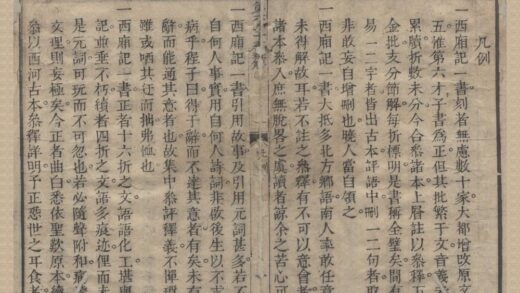 凡例
一西廂記一書刻者無慮數十家大都增改原文
五惟第六才子書為正但其批繁于文首
累牘折數未分今合叅諸本上層註以叅釋下
金批支分節解每折標明是書稱全璧矣間有
易一二字者皆出古本評語中刪一二句者取
非敢妄自增刪也曉人當自領之
一西廂記一書大抵多北方鄉語南人率敢任意
未得解故耳若不註之叅釋有不可以意會者
諸本叅入庶無脫畧之虞讀者諒余之苦心可
一西廂記一書引用故事及引用元詞甚多若不
自何人事實用自何人詩詞非欲後生以不求
病乎程子曰得于辭而不達其意者有矣未有
辭而能通其意者也故集中叅評釋義不憚
雖或哂其迂而揣弗恤也
一西廂記一書正者十六折之文語語化工堪與
記並垂不朽續者四折之文語多痕迹俚而
是元詞可玩而不可忽也若必隨聲附和窮
文理則妄極矣今正者曲白悉依聖歎原本續
叅以西河古本叅釋詳明予正惡世之耳食者